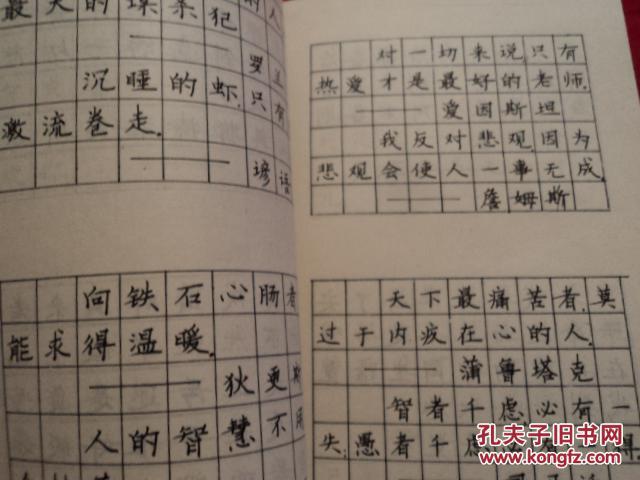 最大的
犯
沉睡的虾,只有
激流卷走.
———谚语
向铁石心肠者
能求得温暖.
———狄更斯
人的智慧不用
对一切来说,只有
热爱才是最好的老师.
———爱因斯坦
我反对悲观因为
悲观会使人一事无成.
———詹姆斯
天下最痛苦者,莫
过于内疚在心的人.
———蒲鲁塔克
智者千虑必有一
失,愚者千虑
孔夫子旧书网
www.kongfz.com